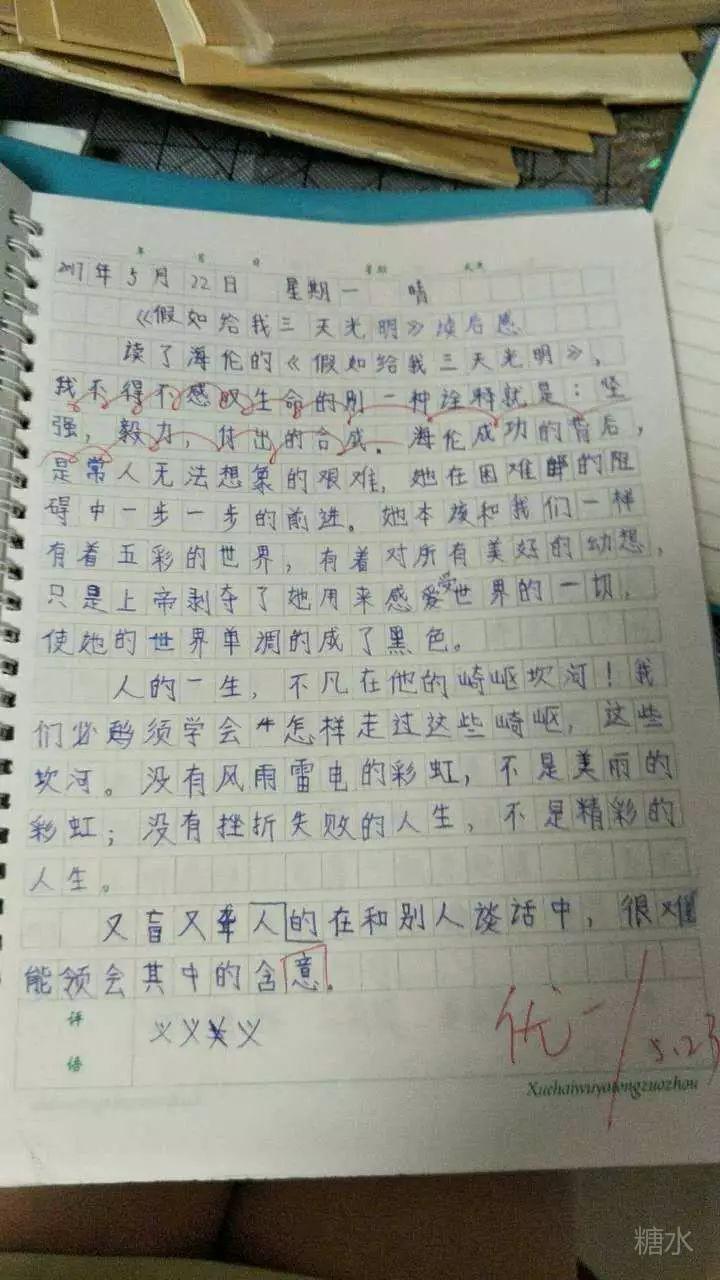 年 月 日 星期 天气
2017年5月22日 星期一 晴
《假如给我三天光明》读后感
读了海伦的《假如给我三天光明》,
我不得不感叹生命的别一种诠释就是:坚
强,毅力,付出的合成。海伦成功的背后,
是常人无法想象的艰难,她在困难的阻
碍中一步一步的前进。她本该和我们一样
有着五彩的世界,有着对所有美好的幼想,
只是上帝剥夺了她用来感受世界的一切,
使她的世界单调的成了黑色。
人的一生,不凡在他的崎岖坎河!我
们必须学会怎样走过这些崎岖,这些
坎河。没有风雨雷电的彩虹,不是美丽的
彩虹;没有挫折失败的人生,不是精彩的
人生。
又盲又聋人的在和别人谈话中,很难
能领会其中的含意。
评 义义义义
语
优- 5.23
Xuehaiwuyatongzuozhou
糖水